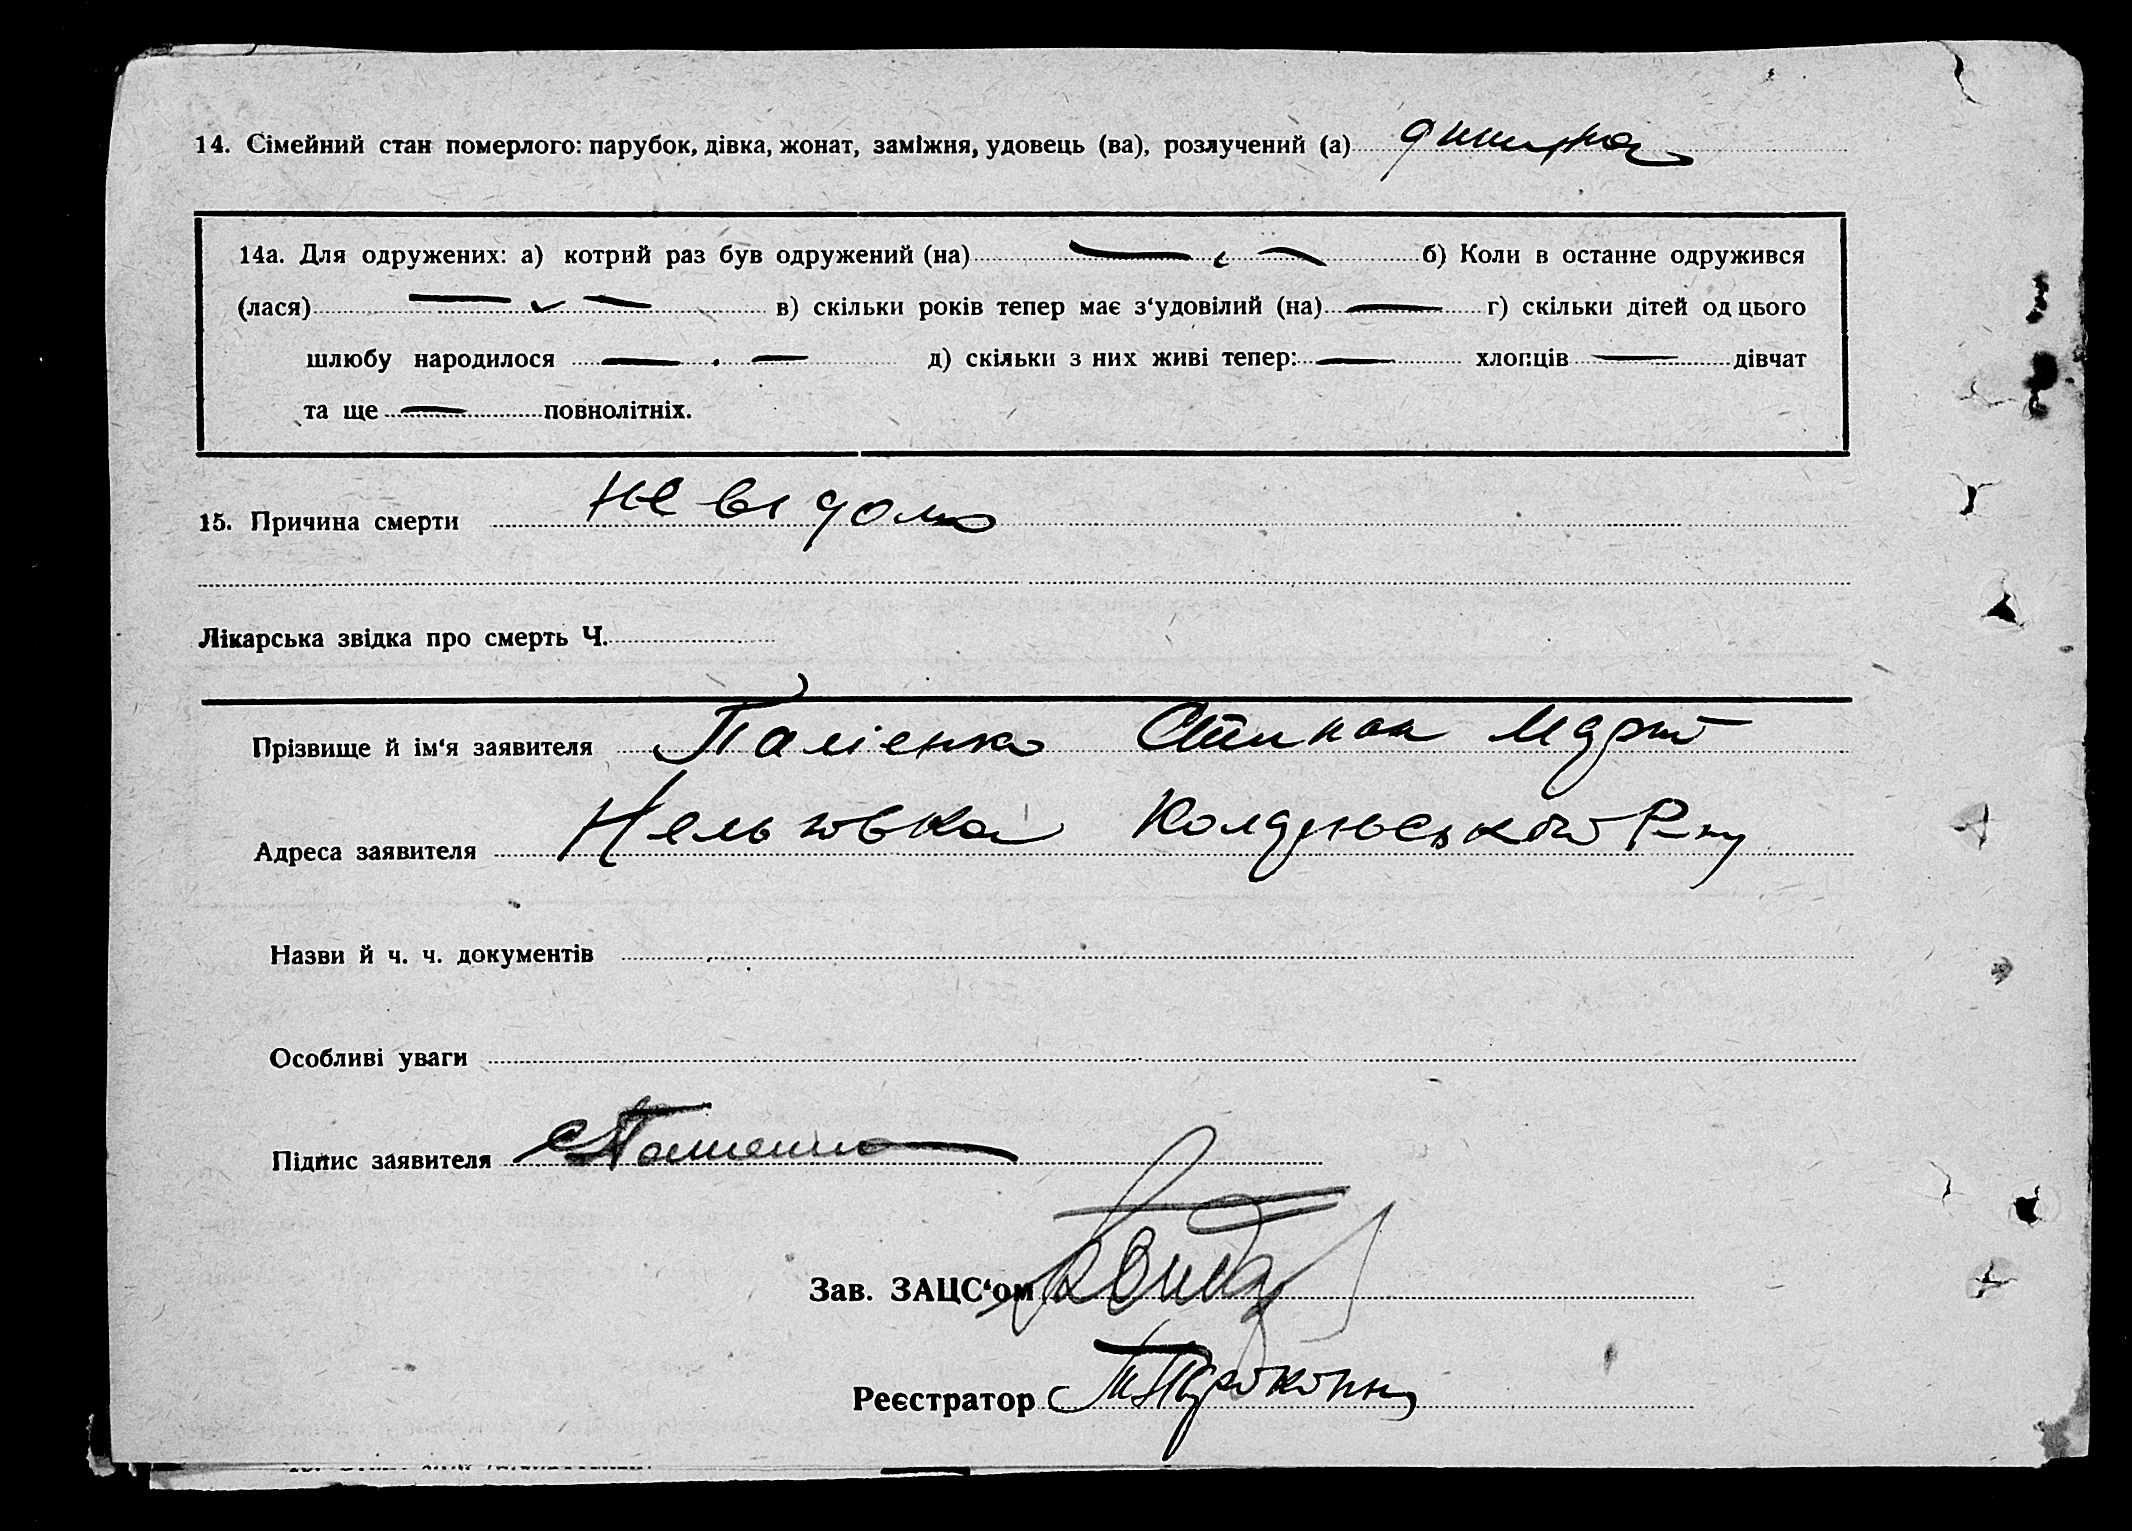 14. Сімейний стан померлого: парубок, дівка, жонат, заміжня, удовець (ва), розлучений (а) дитина
14а. Для одружених: а) котрий раз був одружений (на) — б) Коли в останне одружився
(лася) — в) скільки років тепер має з‘удовілий (на) — г) скільки дітей од цього
шлюбу народилося — д) скільки з них живі тепер: — хлопців — дівчат
та ще — повнолітніх.
15. Причина смерти не відомо
Лікарська звідка про смерть Ч.
Прізвище й ім‘я заявителя Палієнко Степан
Адреса заявителя Р-ну
Назви й ч. ч. документів
Особливі уваги
Підпис заявителя
Зав. ЗАЦС‘ом
Реєстратор